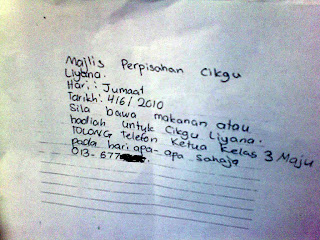 Majlis Perpisahan Cikgu
Liyana.
Hari : Jumaat
Tarikh: 4/6/2010
Sila bawa makanan atau
hadiah untuk Cikgu Liyana.
TOLONG Telefon Ketua Kelas 3 Maju
pada hari apa-apa sahaja
013-677